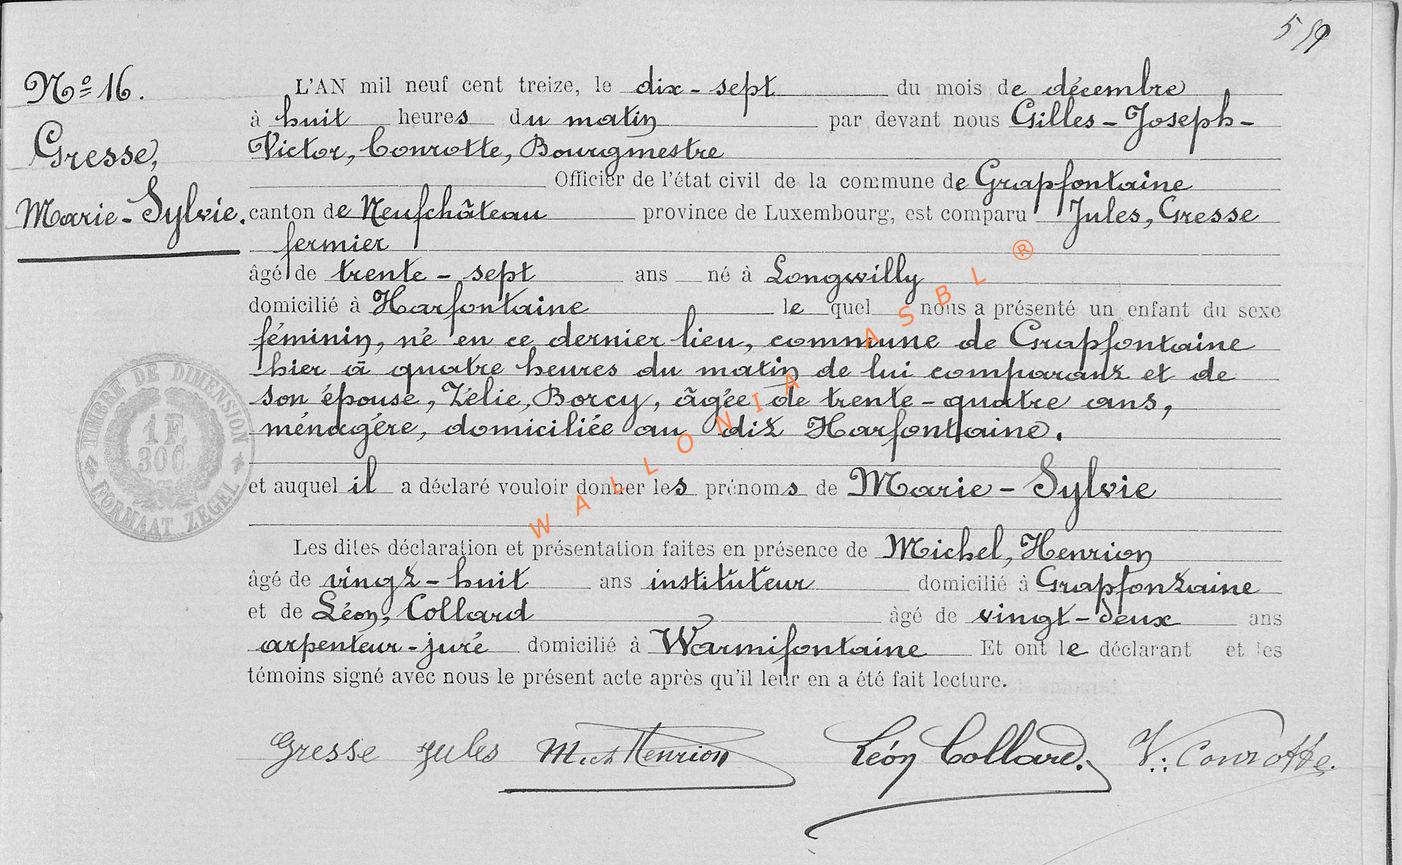 519
Nº 16.
Gresse,
Marie-Sylvie.
L'AN mil neuf cent treize, le dix-sept du mois de décembre
à huit heures du matin par devant nous Gilles-Joseph-
Victor, Conrotte, Bourgmestre
Officier de l'état civil de la commune de Grapfontaine
canton de Neufchâteau province de Luxembourg, est comparu Jules, Gresse
fermier
âgé de trente-sept ans né à Longwilly
domicilié à Harfontaine le quel nous a présenté un enfant du sexe
féminin, né en ce dernier lieu, commune de Grapfontaine
hier à quatre heures du matin de lui comparant et de
son épouse, Zélie, Borcy, âgée de trente-quatre ans,
ménagère, domiciliée au dit Harfontaine.
et auquel il a déclaré vouloir donner les prénoms de Marie-Sylvie
Les dites déclaration et présentation faites en présence de Michel, Henrion
âgé de vingt-huit ans instituteur domicilié à Grapfontaine
et de Léon, Collard âgé de vingt-deux ans
arpenteur-juré domicilié à Warmifontaine Et ont le déclarant et les
témoins signé avec nous le présent acte après qu'il leur en a été fait lecture.
Gresse Jules Mich Henrion Léon Collard. V. Conrotte.
TIMBRE DE DIMENSION
1 F.
30 C.
FORMAAT ZEGEL
WALLONIA ASBL ®